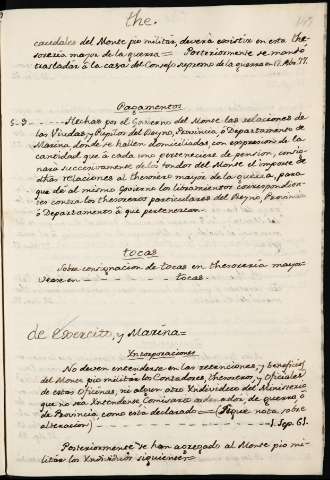 the.
caudales del Monte pio militar, deverá existir en esta the-
soreria mayor de la guerra = Posteriormente se mandó
trasladar á la casa del Consejo supremo de la guerra en 17. Abr. 77.
Pagamentos
5-9 Hechas por el Govierno del Monte las relaciones de
las Viudas, y Pupilos del Reyno, Provincia, ó Departamento de
Marina donde se hallen domiciliadas, con expresion de la
cantidad que á cada uno perteneciere de pension, consig-
nara succesivamente de los fondos del Monte el importe de
dhas relaciones al thesorero mayor de la guerra, para
que dé al mismo Govierno los libramientos correspondien-
tes contra los thesoreros particulares del Reyno, Provincia
ó Departamento á que pertenezcan.
tocas
Sobre consignacion de tocas en thesoreria mayor
vease en tocas.
de Exercito, y Marina =
Yncorporaciones
No deven entenderse en las retenciones, y beneficios
del Monte pio militar los Contadores, thesoreros, y Oficiales
de estas Oficinas, ni algun otro Yndividuo del Ministerio
que no sea Yntendente Comisario ordenador, de guerra, ó
de Provincia como está declarado = (Sigue nota sobre
alteracion) 1. Sep. 61.
Posteriormente se han agregado al Monte pio mi-
litar los Yndividuos siguientes =